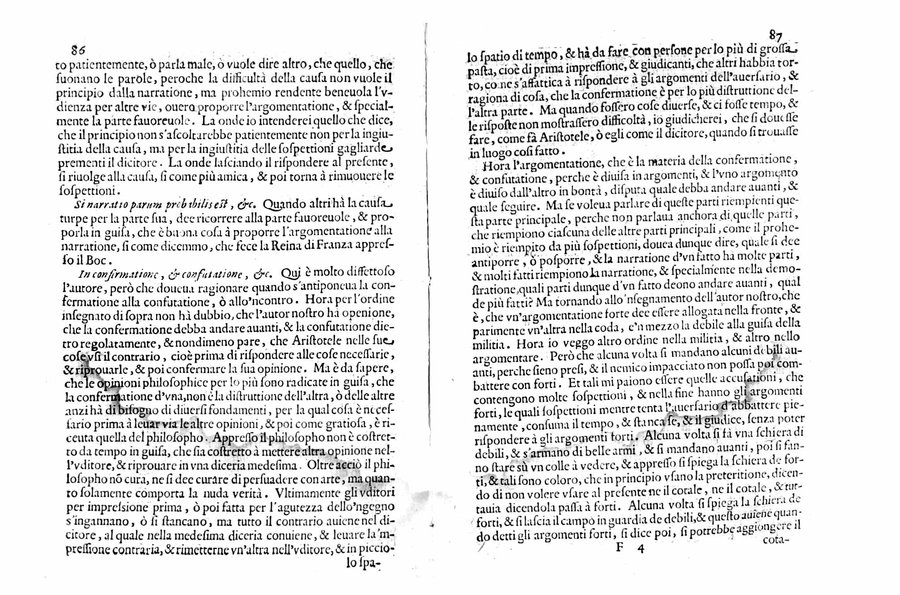 86
to patientemente, ò parla male, ò vuole dire altro, che quello, che
suonano le parole, peroche la difficultà della causa non vuole il
principio dalla narratione, ma prohemio rendente beneuola l'v-
dienza per altre vie, ouero proporre l'argomentatione, & spetial-
mente la parte fauoreuole. La onde io intenderei quello che dice,
che il principio non s'ascoltarebbe patientemente non per la ingiu-
stitia della causa, ma per la ingiustitia delle sospettioni gagliarde
prementi il dicitore. La onde lasciando il rispondere al presente,
si riuolge alla causa, si come più amica, & poi torna à rimuouere le
sospettioni.
Si narratio parum probabilis est, &c. Quando altri hà la causa
turpe per la parte sua, dee ricorrere alla parte fauoreuole, & pro-
porla in guisa, che è buona cosa à proporre l'argomentatione alla
narratione, si come dicemmo, che fece la Reina di Franza appres-
so il Boc.
In confirmatione, & confutatione, &c. Qui è molto diffettoso
l'autore, però che doueua ragionare quando s'antiponeua la con-
fermatione alla confutatione, ò allo'ncontro. Hora per l'ordine
insegnato di sopra non hà dubbio, che l'autor nostro ha openione,
che la confermatione debba andare auanti, & la confutatione die-
tro regolatamente, & nondimeno pare, che Aristotele nelle sue
cose vsi il contrario, cioè prima di rispondere alle cose necessarie,
& riprouarle, & poi confermare la sua opinione. Ma è da sapere,
che le opinioni philosophice per lo più sono radicate in guisa, che
la confermatione d'vna, non è la distruttione dell'altra, ò delle altre
anzi hà di bisogno di diuersi fondamenti, per la qual cosa è neces-
sario prima à leuar via le altre opinioni, & poi come gratiosa, è ri-
ceuta quella del philosopho. Appresso il philosopho non è costret-
to da tempo in guisa, che sia costretto à mettere altra opinione nel-
l'vditore, & riprouare in vna diceria medesima. Oltre acciò il phi-
losopho nō cura, ne si dee curare di persuadere con arte, ma quan-
to solamente comporta la nuda verità. Vltimamente gli vditori
per impressione prima, ò poi fatta per l'agutezza dello'ngegno
s'ingannano, ò si stancano, ma tutto il contrario auiene nel di-
citore, al quale nella medesima diceria conuiene, & leuare la'm-
pressione contraria, & rimetterne vn'altra nell'vditore, & in piccio-
lo spa-
87
lo spatio di tempo, & hà da fare con persone per lo più di grossa
pasta, cioè di prima impressione, & giudicanti, che altri habbia tor-
to, come s'affattica à rispondere à gli argomenti dell'auersario, &
ragiona di cosa, che la confermatione è per lo più distruttione del-
l'altra parte. Ma quando fossero cose diuerse, & ci fosse tempo, &
le risposte non mostrassero difficoltà, io giudicherei, che si douesse
fare, come fà Aristotele, ò egli come il dicitore, quando si trouasse
in luogo così fatto.
Hora l'argomentatione, che è la materia della confermatione,
& confutatione, perche è diuisa in argomenti, & l'vno argomento
è diuiso dall'altro in bontà, disputa quale debba andare auanti, &
quale seguire. Ma se voleua parlare di queste parti riempienti que-
sta parte principale, perche non parlaua anchora di quelle parti,
che riempiono ciascuna delle altre parti principali, come il prohe-
mio è riempito da più sospettioni, douea dunque dire, quale si dee
antiporre, ò posporre, & la narratione d'vn fatto ha molte parti,
& molti fatti riempiono la narratione, & spetialmente nella demo-
stratione, quali parti dunque d'vn fatto deono andare auanti, qual
de più fatti? Ma tornando allo'nsegnamento dell'autor nostro, che
è, che vn'argomentatione forte dee essere allogata nella fronte, &
parimente vn'altra nella coda, e'n mezzo la debile alla guisa della
militia. Hora io veggo altro ordine nella militia, & altro nello
argomentare. Però che alcuna volta si mandano alcuni debili au-
anti, perche sieno presi, & il nemico impacciato non possa poi com-
battere con forti. Et tali mi paiono essere quelle accusationi, che
contengono molte sospettioni, & nella fine hanno gli argomenti
forti, le quali sospettioni mentre tenta l'auersario d'abbattere pie-
namente, consuma il tempo, & stanca se, & il giudice, senza poter
rispondere à gli argomenti forti. Alcuna volta si fà vna schiera di
debili, & s'armano di belle armi, & si mandano auanti, poi si fan-
no stare sù vn colle à vedere, & appresso si spiega la schiera de for-
ti, & tali sono coloro, che in principio vsano la preteritione, dicen-
do di non volere vsar al presente ne il cotale, ne il cotale, & tut-
tauia dicendola passa à forti. Alcuna volta si spiega la schiera de
forti, & si lascia il campo in guardia de debili, & questo auiene quan-
do detti gli argomenti forti, si dice poi, si potrebbe aggiongere il
F 4
cota-